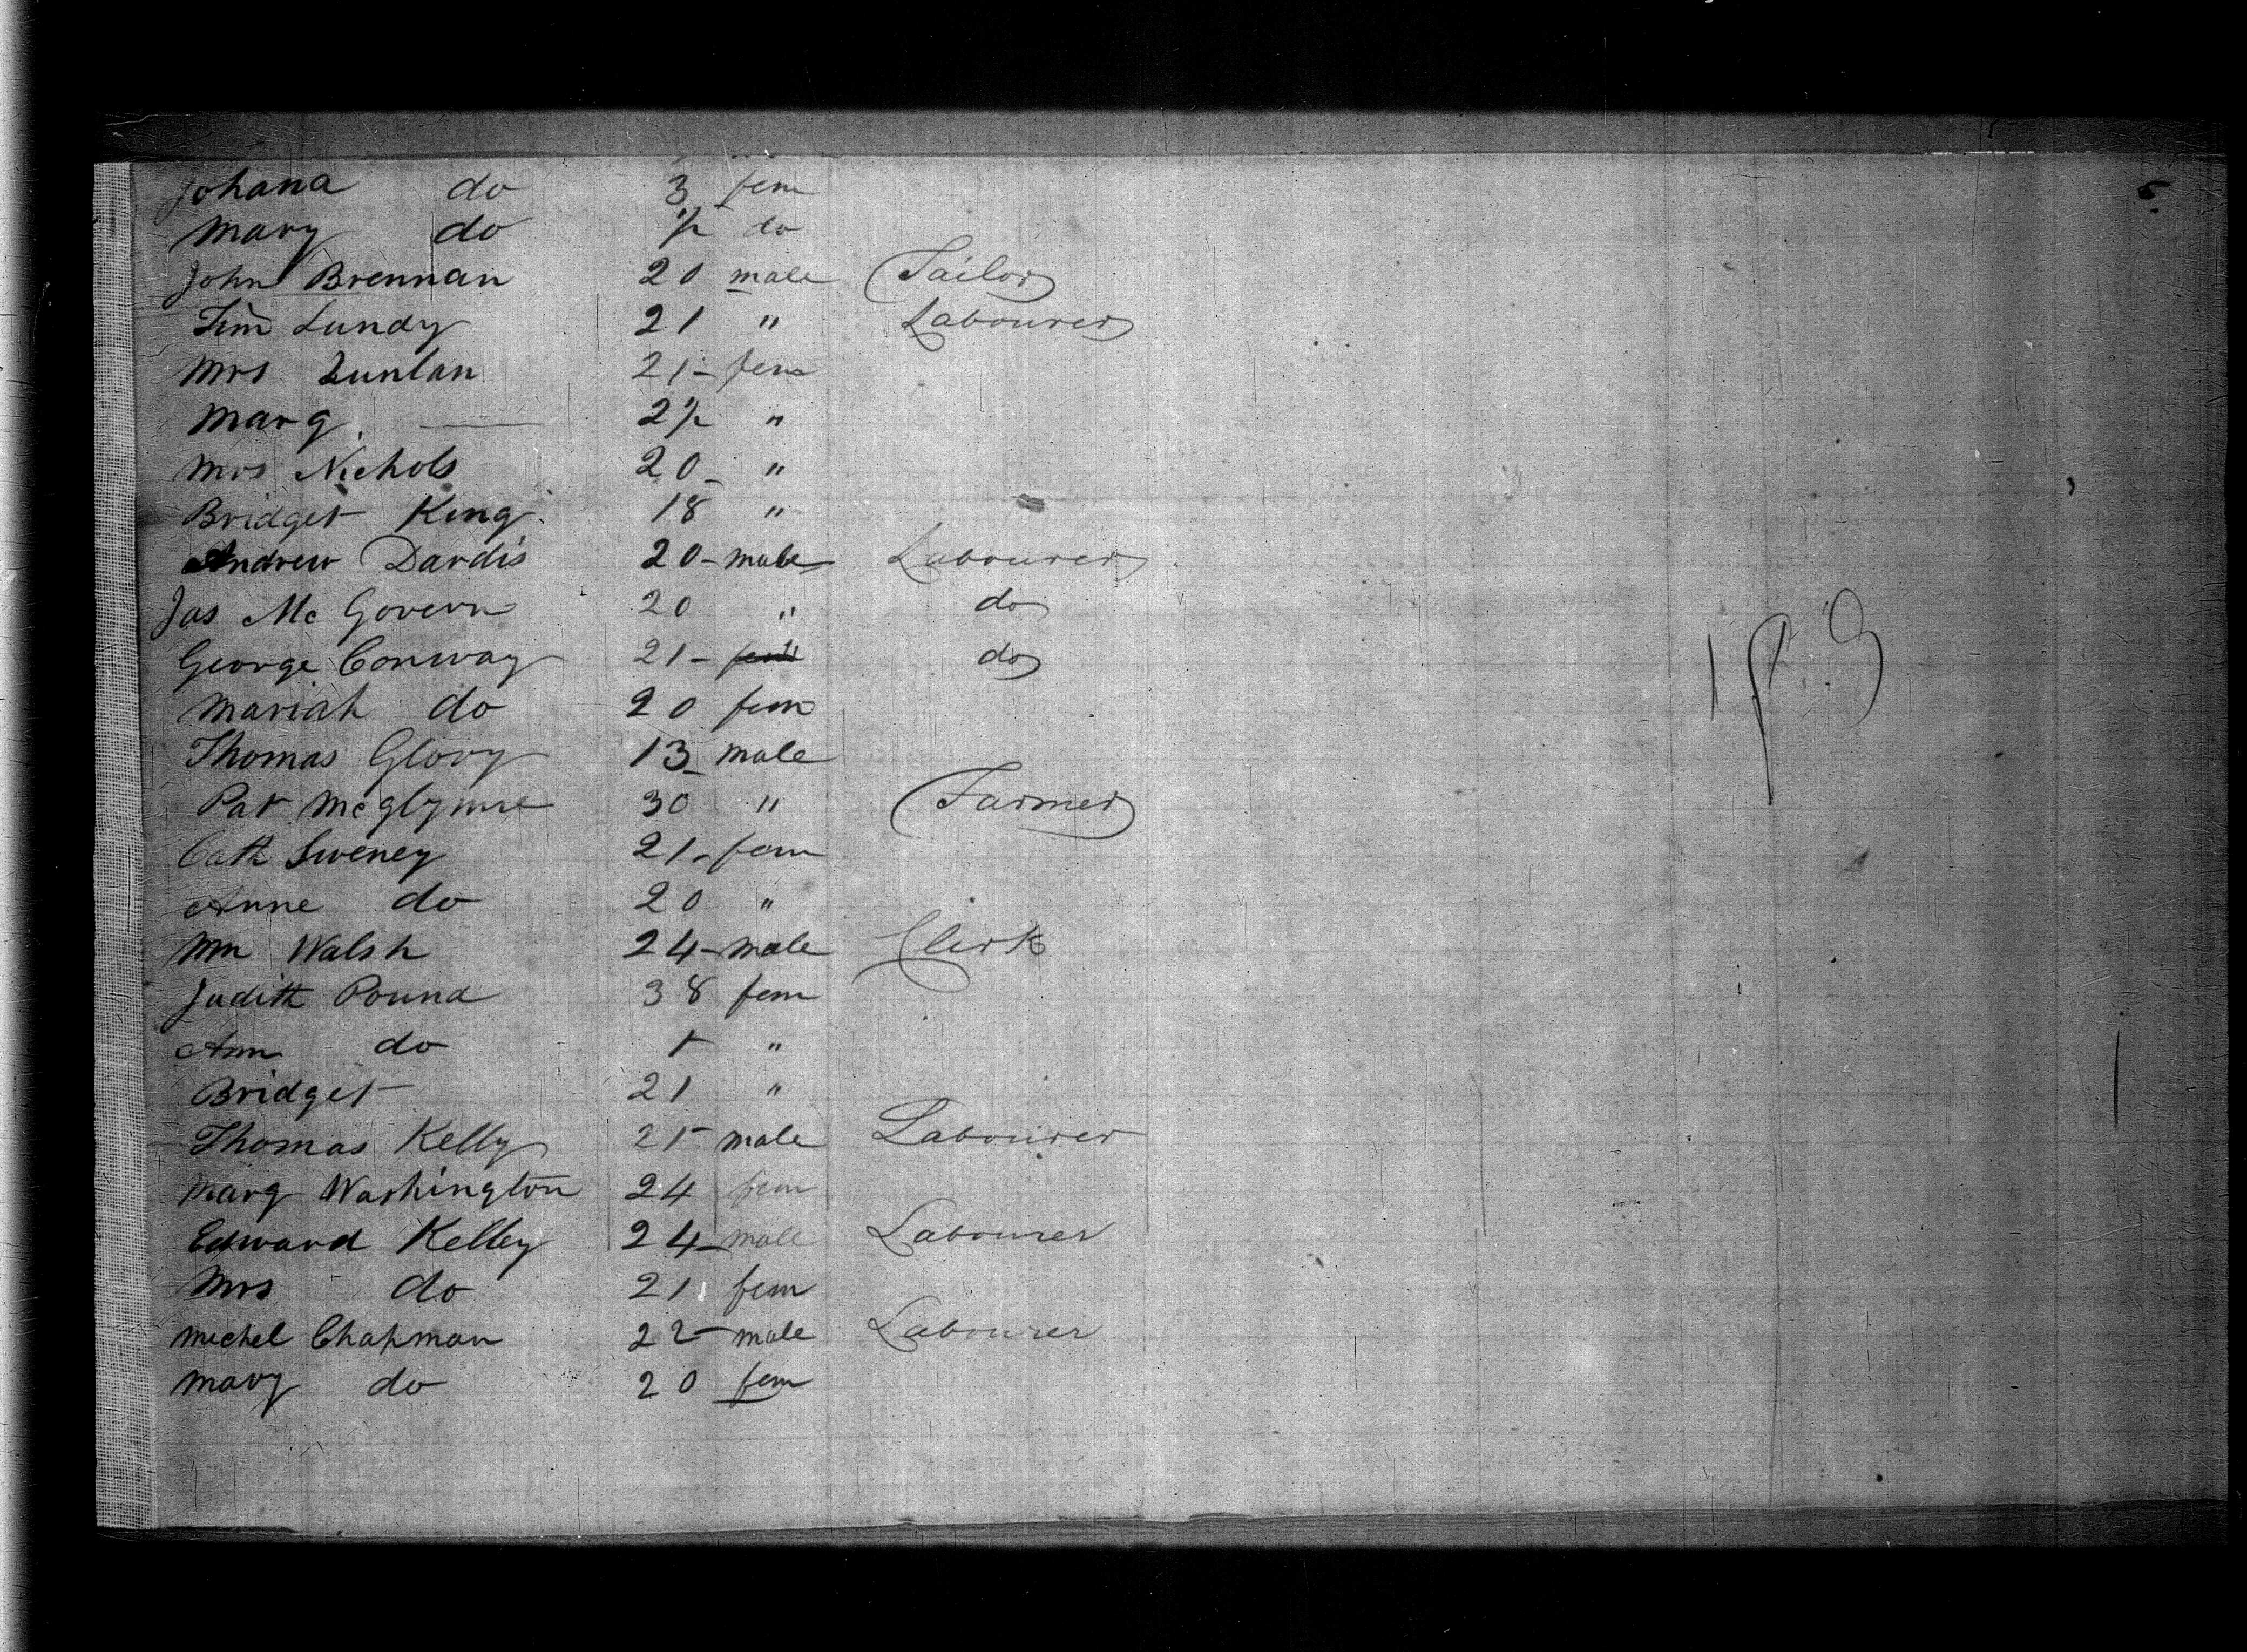 Johana do 3 fem
Mary do ½ do
John Brennan 20 male Tailor
Tim Lundy 21 " Labourer
Mrs 21 - fem
Marg. — 2½ "
Mrs Nichols 20 - "
Bridget King 18 "
Andrew Dardis 20 - male Labourer
Jas Mc Govern 20 " do
George Conway 21 - do
Mariah do 20 fem
Thomas Glory 13 - male
Pat McGlynne 30 " Farmer
Cath Sweney 21 - fem
Anne do 20 "
Wm Walsh 24 - male Clerk
Judith Pound 38 fem
Ann do "
Bridget 21 "
Thomas Kelly male Labourer
Marg Washington 24 fem
Edward Kelley 24 - male Labourer
Mrs do 21 fem
Michel Chapman 22 - male Labourer
Mary do 20 fem